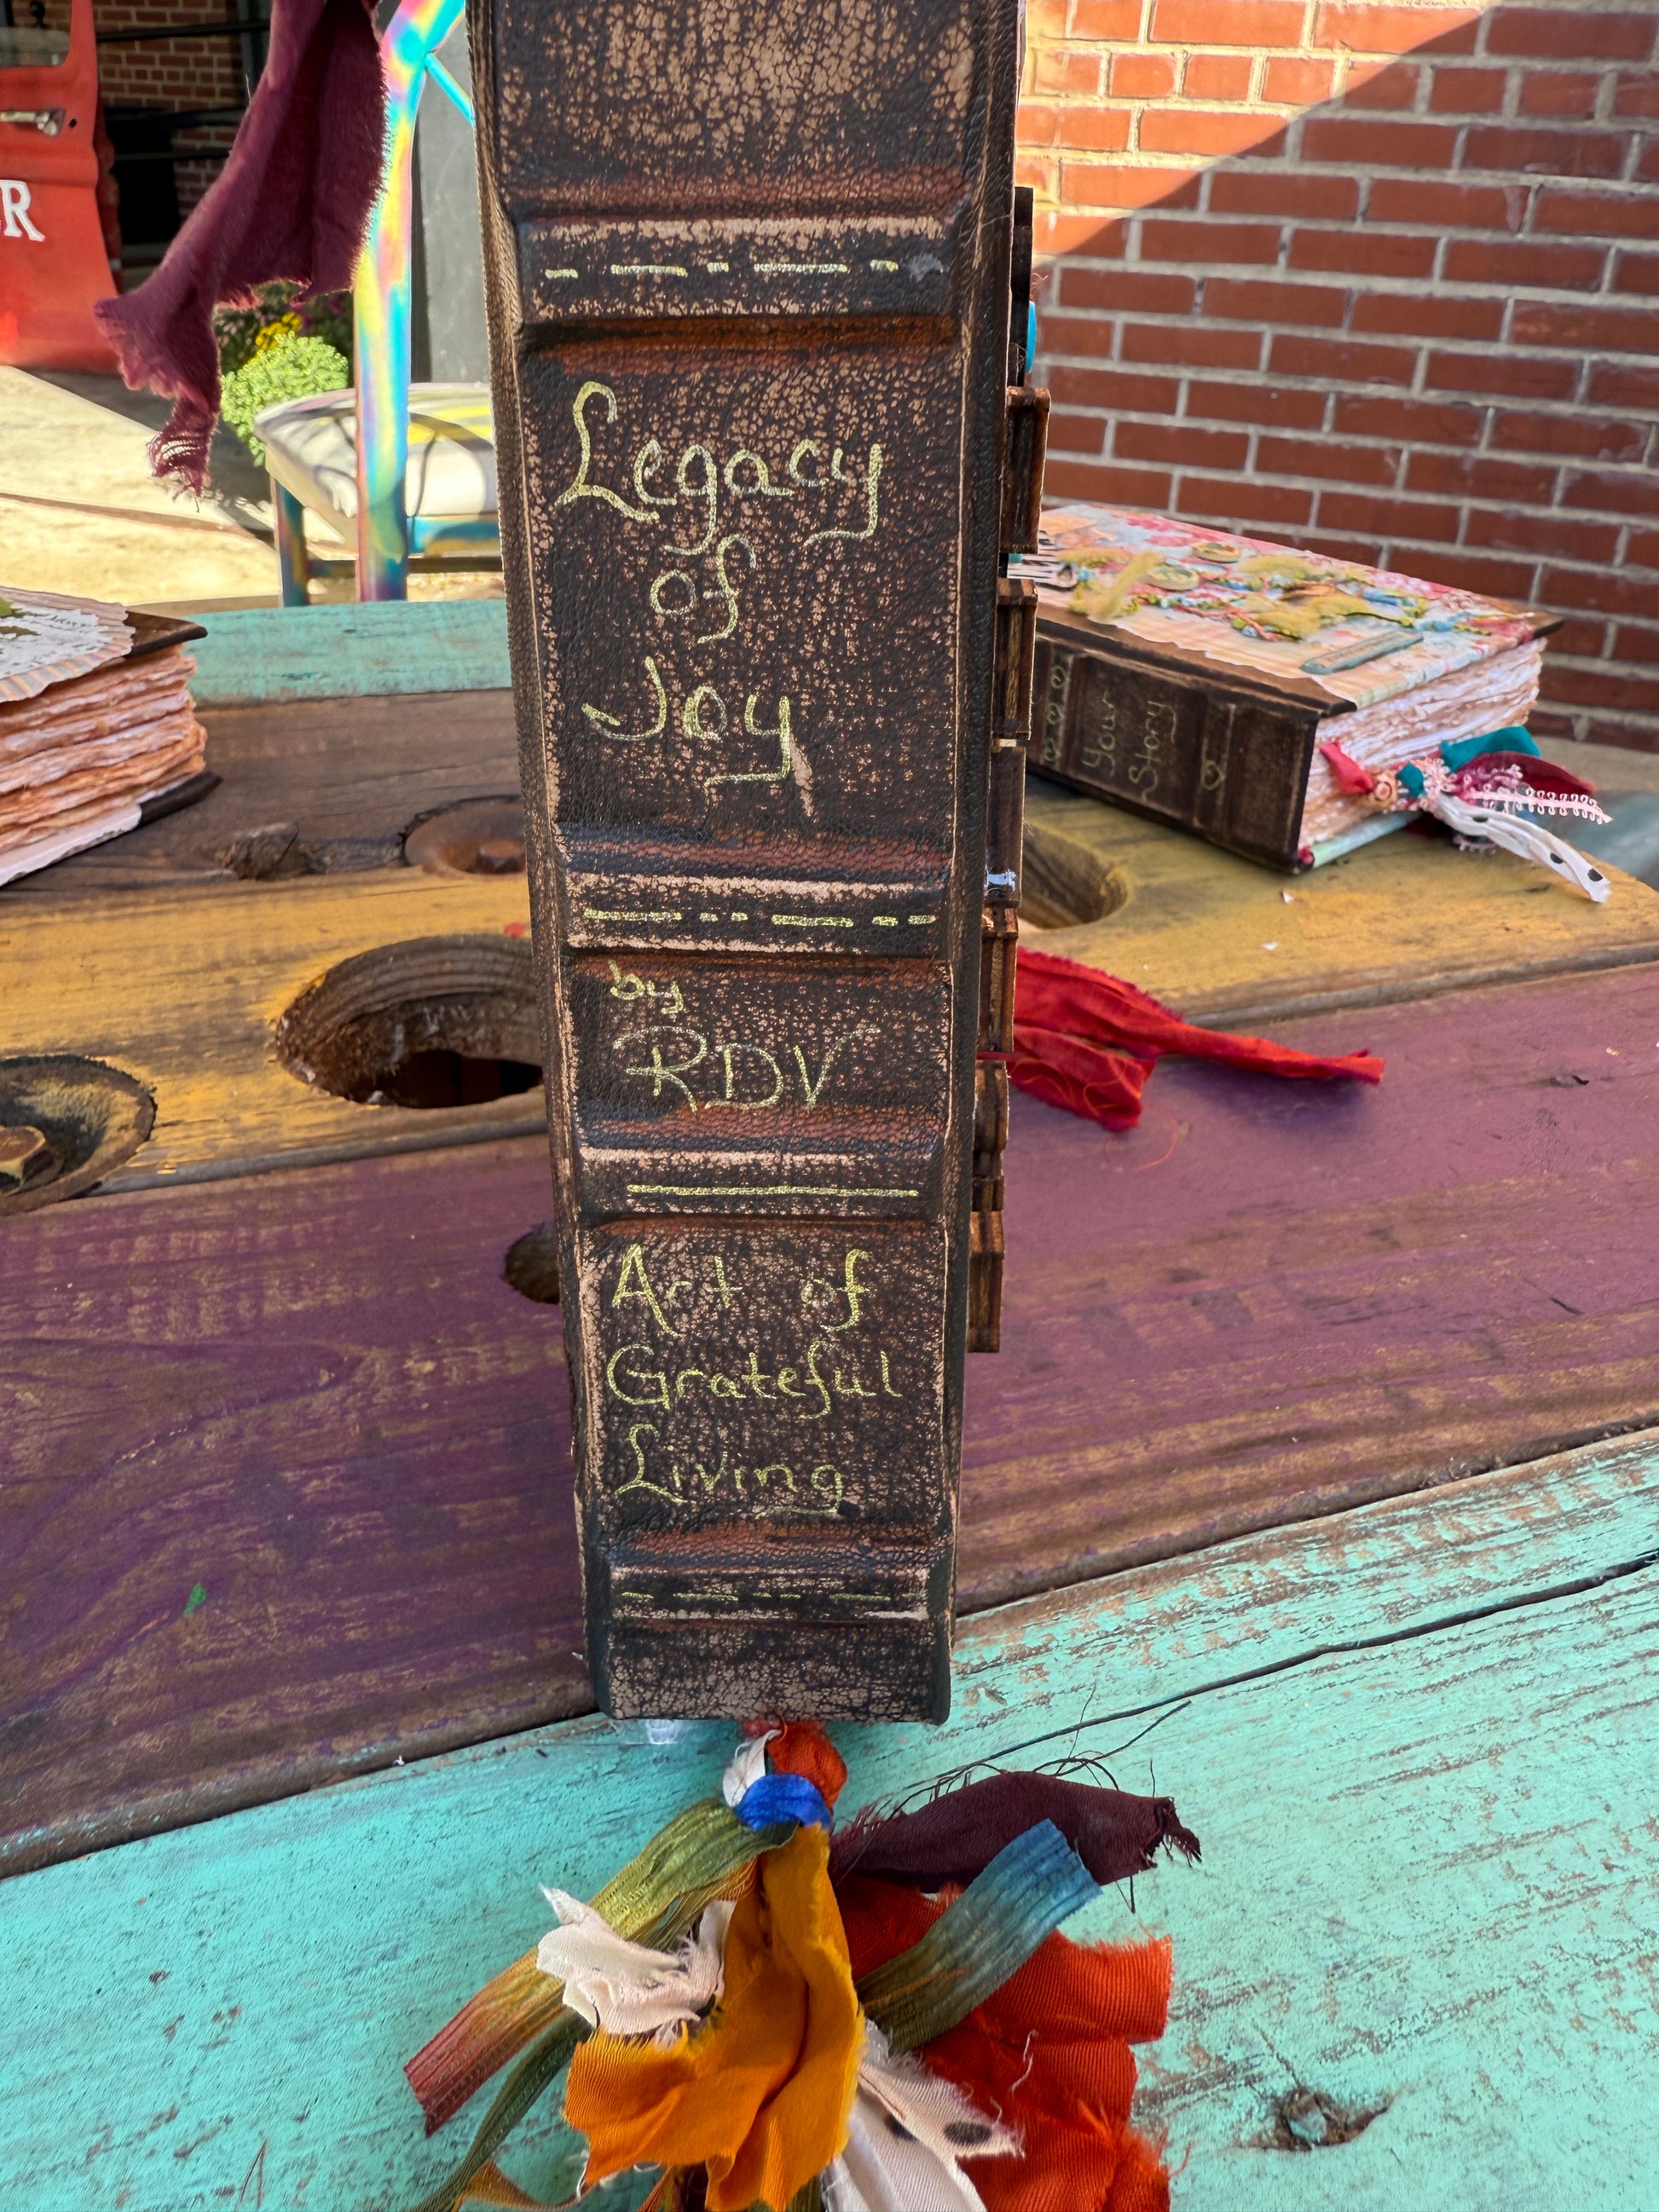 Legacy
of
Joy
by
RDV
Art of
Grateful
Living
Your
Story
R